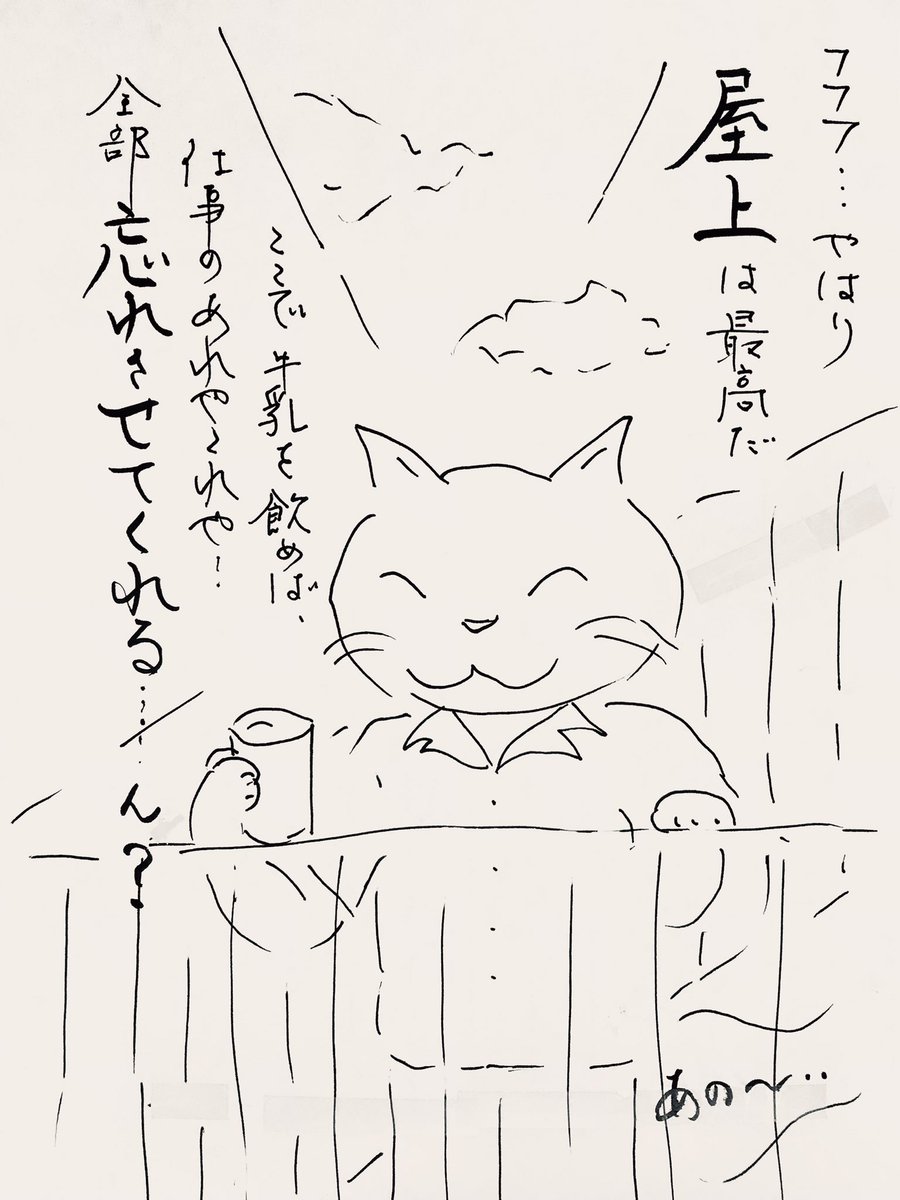 フフフ…やはり
屋上は最高だ
ここで牛乳を飲めば、
仕事のあれやこれや…
全部忘れさせてくれる……ん？
あの〜‥